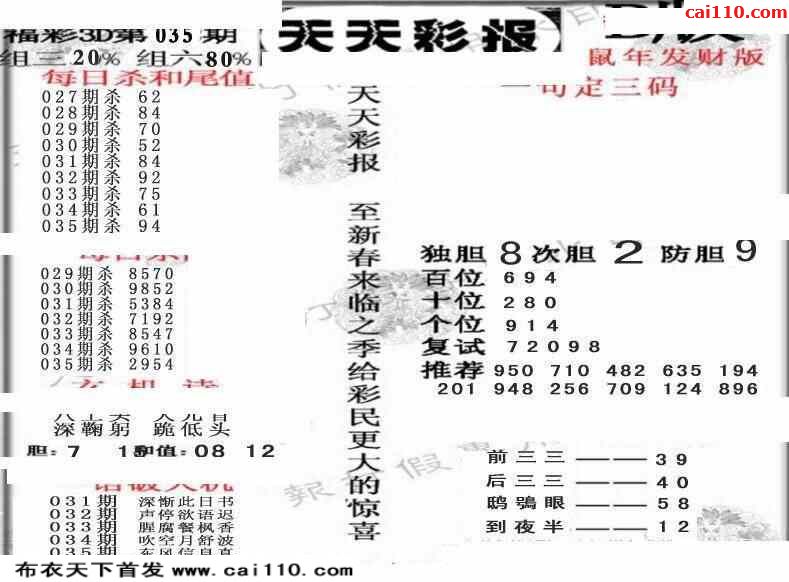 cai110.com
福彩3D第035期
组三20% 组六80%
天天彩报
鼠年发财版
每日杀和尾值
027期杀 62
028期杀 84
029期杀 70
030期杀 52
031期杀 84
032期杀 92
033期杀 75
034期杀 61
035期杀 94
029期杀 8570
030期杀 9852
031期杀 5384
032期杀 7192
033期杀 8547
034期杀 9610
035期杀 2954
深鞠躬 跪低头
胆:7 和值:08 12
031期 深惭此日书
032期 声停欲语迟
033期 腥腐餐枫香
034期 吹空月舒波
035期 东风信息真
天天彩报 至新春来临之季给彩民更大的惊喜
一句定三码
独胆 8 次胆 2 防胆 9
百位 694
十位 280
个位 914
复试 72098
推荐 950 710 482 635 194
201 948 256 709 124 896
前三三——39
后三三——40
鸱鸮眼——58
到夜半——12
布衣天下首发 www.cai110.com